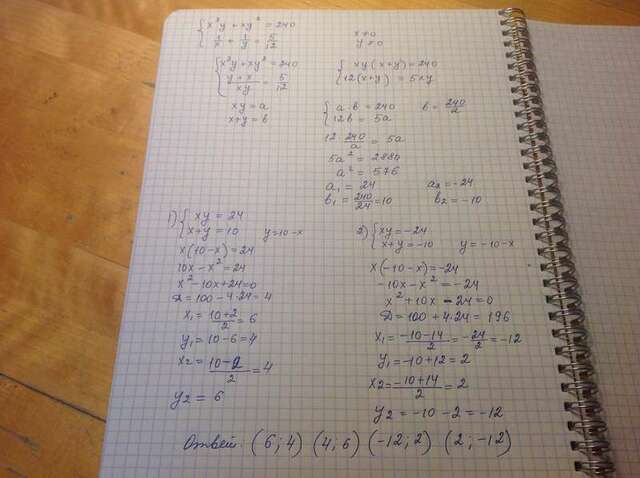 { x²y + xy² = 240
1/x + 1/y = 5/12
x ≠ 0
y ≠ 0
{ x²y + xy² = 240
(y + x)/xy = 5/12
{ xy(x+y) = 240
12(x+y) = 5xy
xy = a
x+y = b
{ a·b = 240
12b = 5a
b = 240/a
12 · 240/a = 5a
5a² = 2880
a² = 576
a₁ = 24
a₂ = -24
b₁ = 240/24 = 10
b₂ = -10
1) { xy = 24
x+y = 10
y = 10-x
x(10-x) = 24
10x - x² = 24
x² - 10x + 24 = 0
D = 100 - 4·24 = 4
x₁ = (10+2)/2 = 6
y₁ = 10-6 = 4
x₂ = (10-2)/2 = 4
y₂ = 6
2) { xy = -24
x+y = -10
y = -10-x
x(-10-x) = -24
-10x - x² = -24
x² + 10x - 24 = 0
D = 100 + 4·24 = 196
x₁ = (-10-14)/2 = -24/2 = -12
y₁ = -10+12 = 2
x₂ = (-10+14)/2 = 2
y₂ = -10-2 = -12
Ответ: (6; 4) (4; 6) (-12; 2) (2; -12)